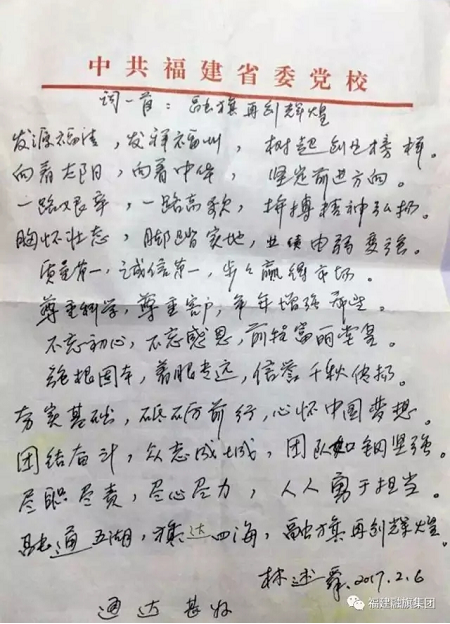 中共福建省委党校
词一首：融旗再创辉煌
发源福清，发祥福州，树起创业榜样。
向着太阳，向着中华，坚定前进方向。
一路艰辛，一路高歌，拼搏精神弘扬。
胸怀壮志，脚踏实地，业绩由弱变强。
质量第一，诚信第一，步步赢得市场。
尊重科学，尊重客户，年年增强
不忘初心，不忘感恩，前程富丽堂皇。
强根固本，着眼长远，信誉千秋传扬。
夯实基础，砥砺前行，心怀中国梦想。
团结奋斗，众志成城，团队如钢坚强。
尽职尽责，尽心尽力，人人勇于担当。
融通五湖，旗达四海，融旗再创辉煌。
林述舜.2017.2.6
通达甚好
福建融旗集团